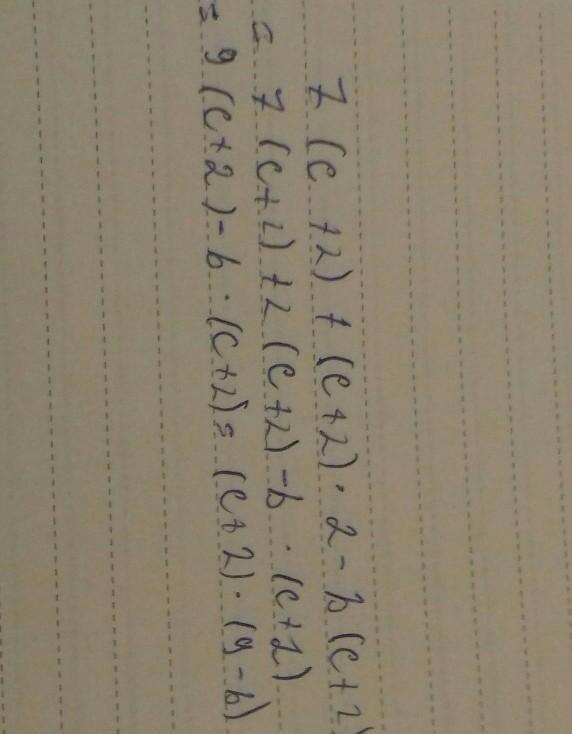 7 (c + 2) + (c + 2) · 2 - b (c + 2)
= 7 (c + 2) + 2 (c + 2) - b · (c + 2)
= 9 (c + 2) - b · (c + 2) = (c + 2) · (9 - b)